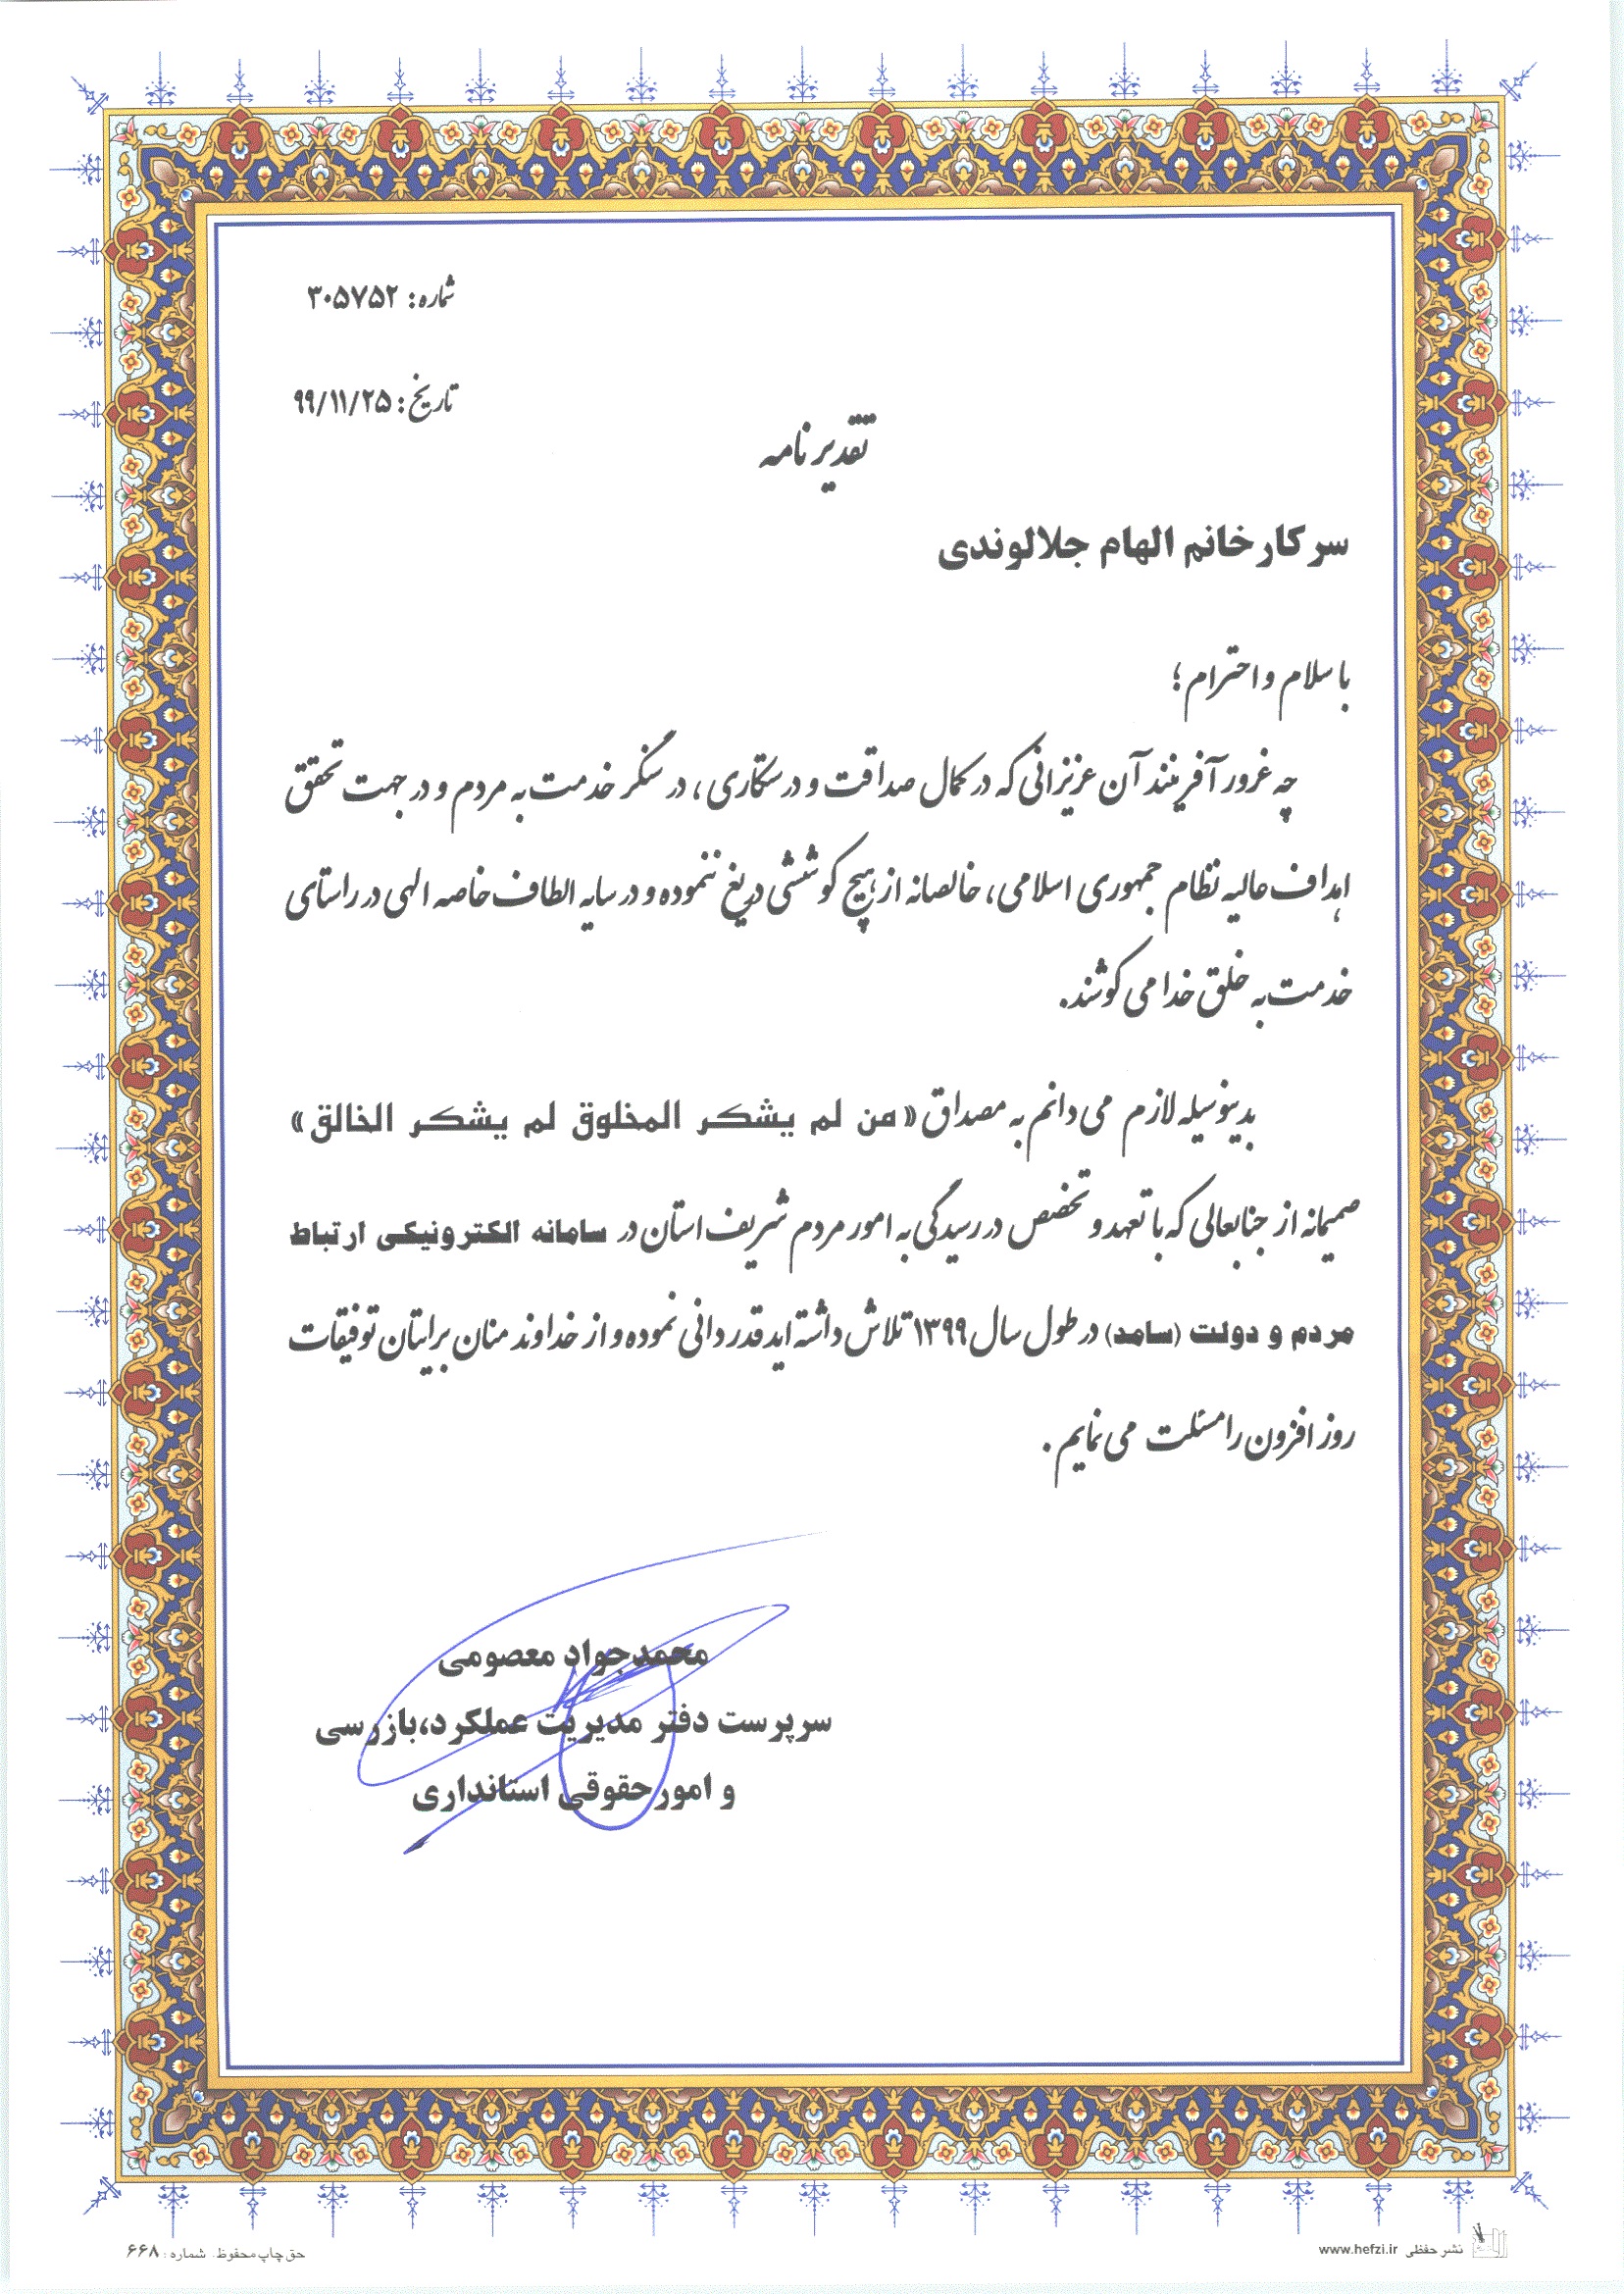 شماره: ۳۰۵۷۵۲
تاریخ: ۹۹/۱۱/۲۵
تقدیرنامه
سرکار خانم الهام جلالوندی
با سلام و احترام؛
چه غرور آفرینند آن عزیزانی که در کمال صداقت و درستکاری، در سنگر خدمت به مردم و در جهت تحقق
اهداف عالیه نظام جمهوری اسلامی، خالصانه از هیچ کوششی دریغ ننموده و در سایه الطاف خاصه الهی در راستای
خدمت به خلق خدا می کوشند.
بدینوسیله لازم می دانم به مصداق «من لم یشکر المخلوق لم یشکر الخالق»
صمیمانه از جنابعالی که با تعهد و تخصص در رسیدگی به امور مردم شریف استان در سامانه الکترونیکی ارتباط
مردم و دولت (سامد) در طول سال ۱۳۹۹ تلاش داشته اید قدردانی نموده و از خداوند منان برایتان توفیقات
روز افزون را مسئلت می نمایم.
محمدجواد معصومی
سرپرست دفتر مدیریت عملکرد،بازرسی
و امور حقوقی استانداری
نشر حفظی www.hefzi.ir
حق چاپ محفوظ. شماره: ۶۶۸